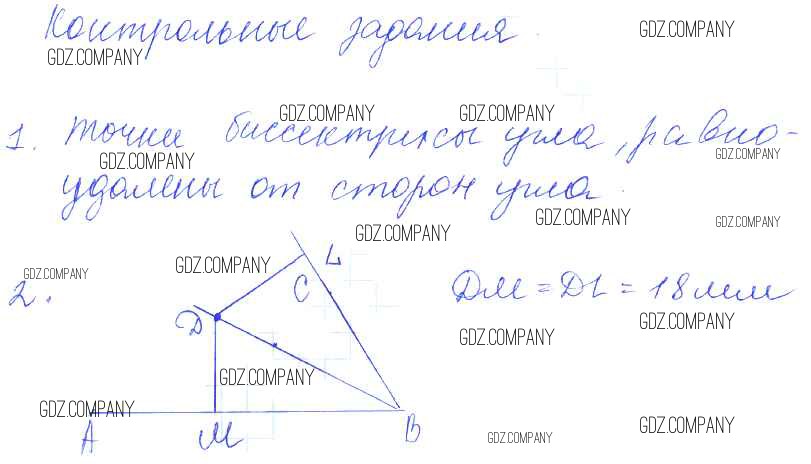 Контрольные задания.
GDZ.COMPANY GDZ.COMPANY
GDZ.COMPANY GDZ.COMPANY
1. Точки биссектрисы угла, равно-
GDZ.COMPANY GDZ.COMPANY
удалены от сторон угла.
GDZ.COMPANY GDZ.COMPANY
GDZ.COMPANY
GDZ.COMPANY GDZ.COMPANY
2. D C L DM = DL = 18 мм
GDZ.COMPANY GDZ.COMPANY
GDZ.COMPANY
GDZ.COMPANY GDZ.COMPANY
A M B
GDZ.COMPANY